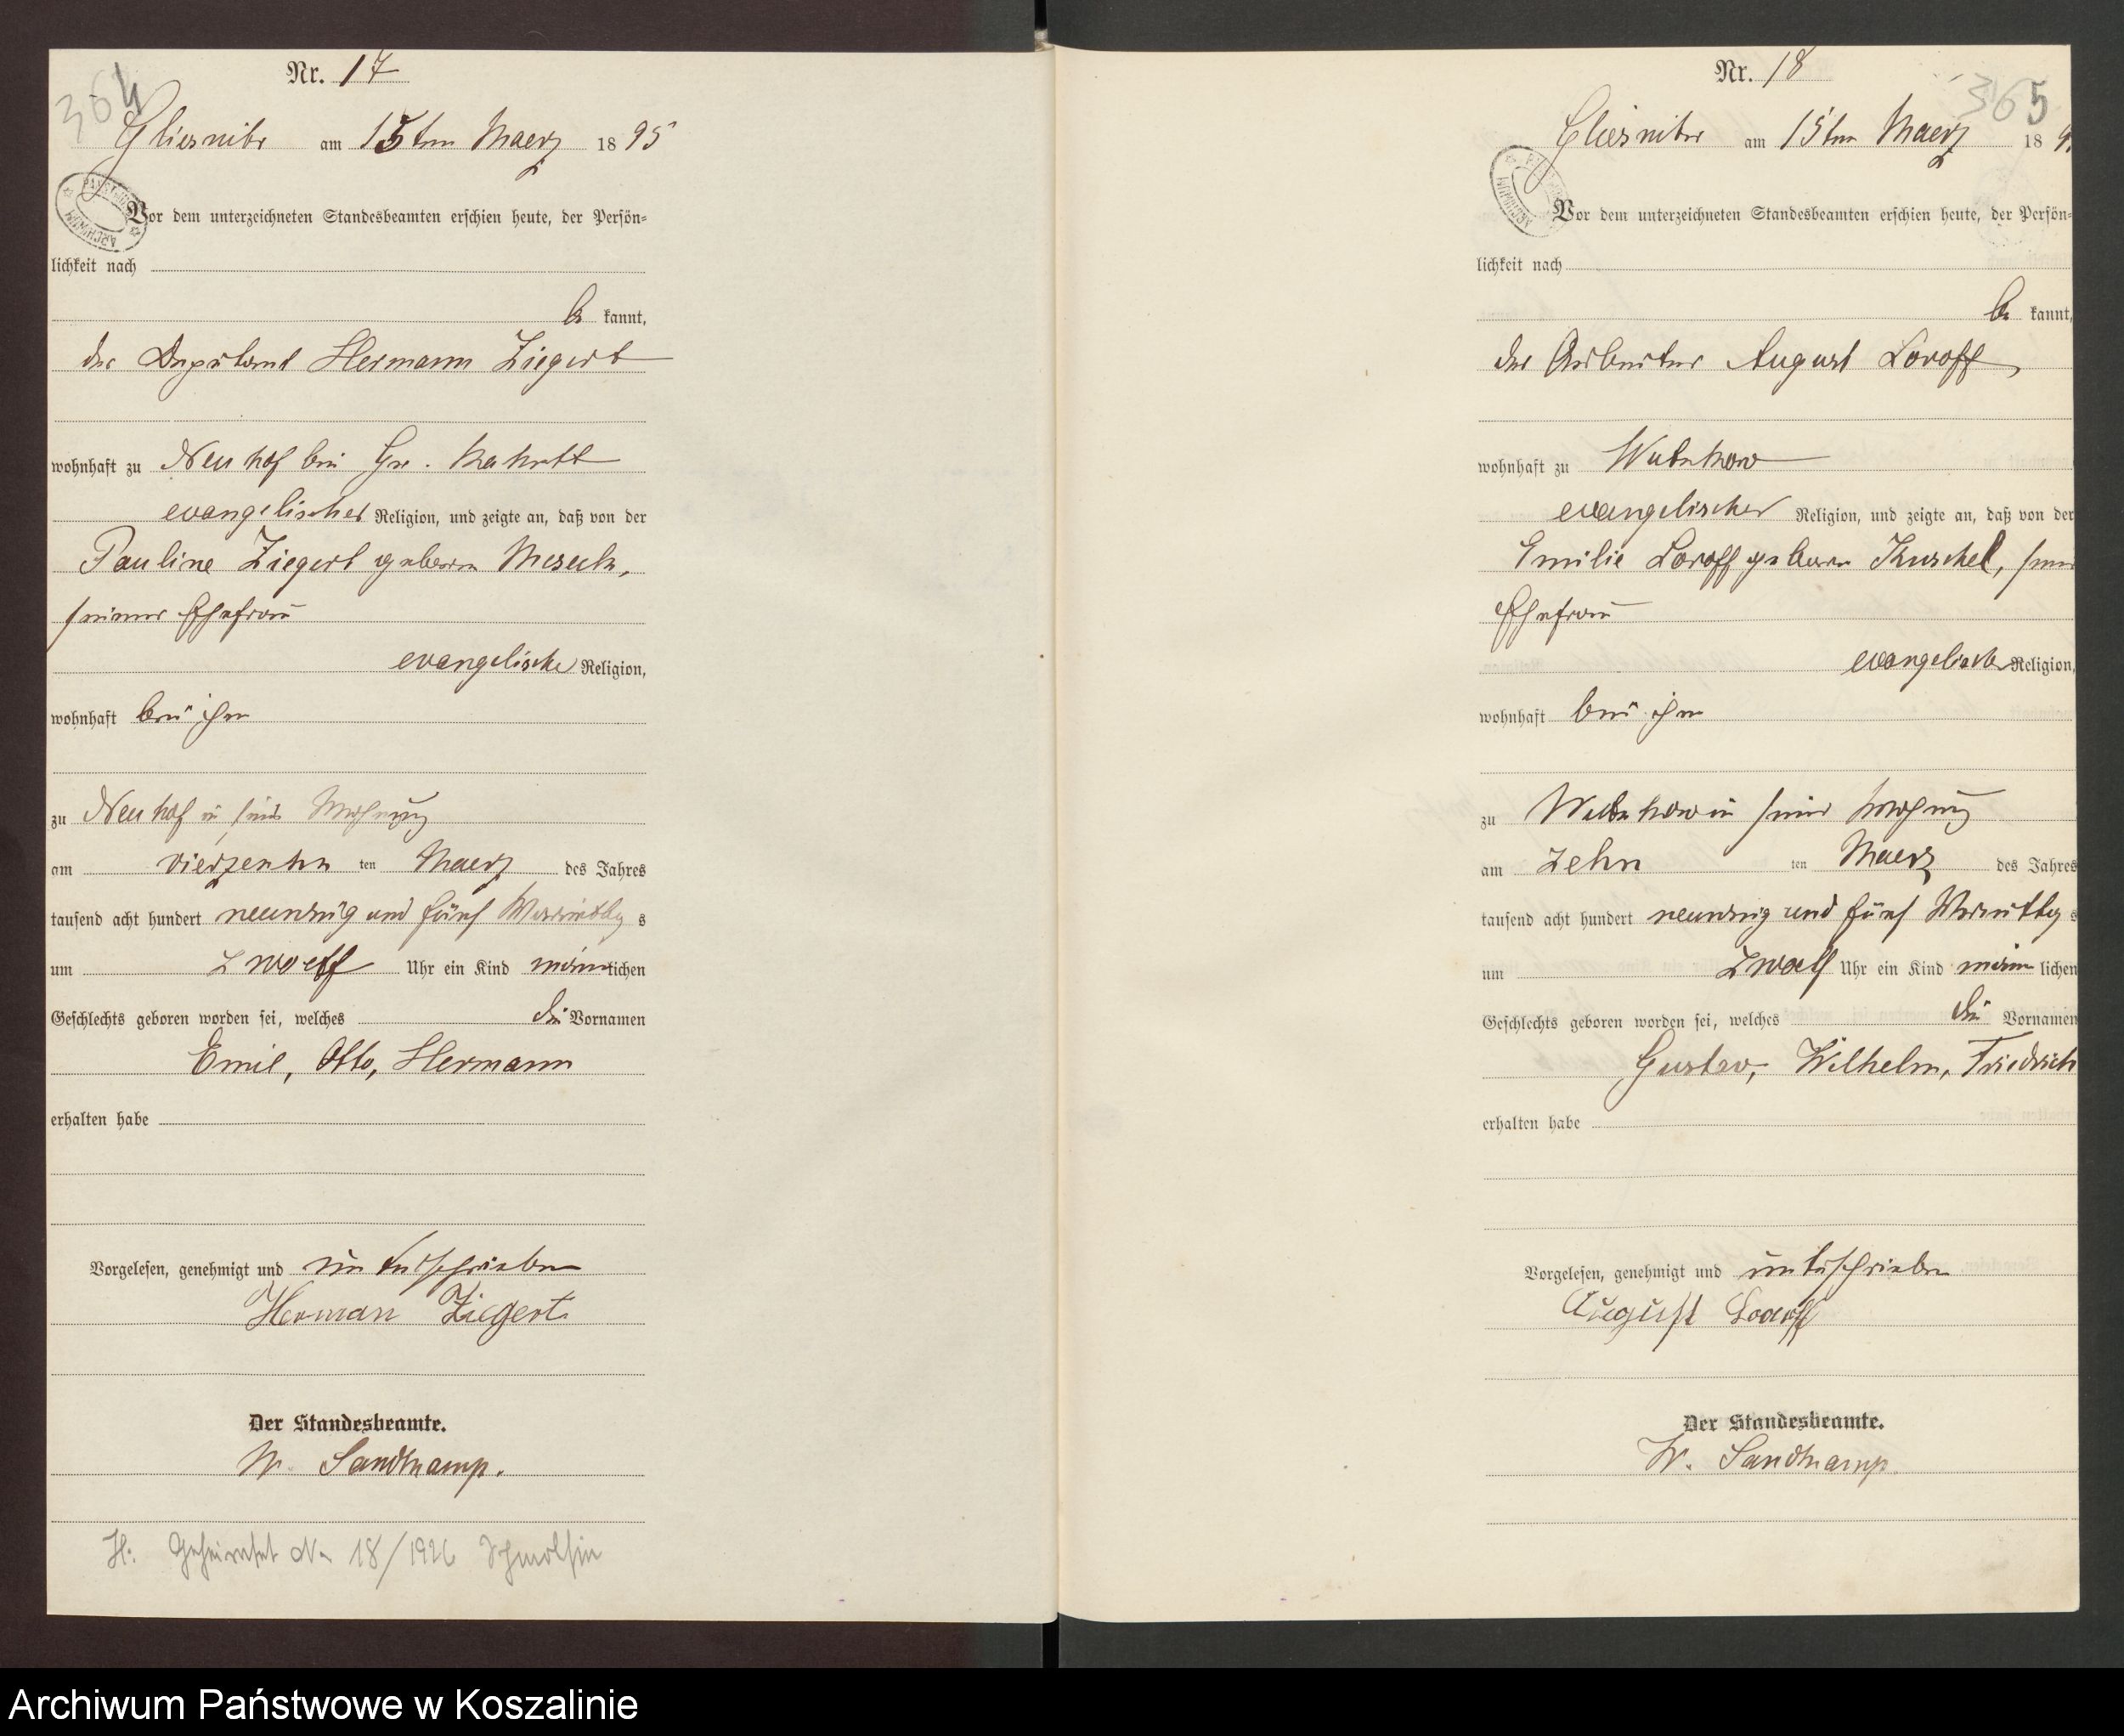 364
Nr. 17
Gliesnitz am 15ten Maerz 1895
Vor dem unterzeichneten Standesbeamten erschien heute, der Persön=
lichkeit nach
be kannt,
der Deputant Hermann Ziegert
wohnhaft zu Neuhof bei Gr.
evangelischer Religion, und zeigte an, daß von der
Pauline Ziegert geboren
seiner Ehefrau
evangelische Religion,
wohnhaft bei ihm
zu Neuhof in seiner Wohnung
am vierzehn ten Maerz des Jahres
tausend acht hundert neunzig und fünf Vormittag s
um zwoelf Uhr ein Kind männlichen
Geschlechts geboren worden sei, welches die Vornamen
Emil, Otto, Hermann
erhalten habe
Vorgelesen, genehmigt und unterschrieben
Herman Ziegert
Der Standesbeamte.
W. Sandkamp.
H: Geheiratet No 18/1926 Schmolsin
365
Nr. 18
Gliesnitz am 15ten Maerz 189
Vor dem unterzeichneten Standesbeamten erschien heute, der Persön=
lichkeit nach
be kannt,
der Arbeiter August Loroff,
wohnhaft zu Wutzkow
evangelischer Religion, und zeigte an, daß von der
Emilie Loroff geboren Kuschel, seiner
Ehefrau
evangelischer Religion,
wohnhaft bei ihm
zu Wutzkow in seiner Wohnung
am zehn ten Maerz des Jahres
tausend acht hundert neunzig und fünf Vormittag s
um zwoelf Uhr ein Kind männ lichen
Geschlechts geboren worden sei, welches die Vornamen
Gustav, Wilhelm, Friedrich
erhalten habe
Vorgelesen, genehmigt und unterschrieben
August Loroff
Der Standesbeamte.
W. Sandkamp.
Archiwum Państwowe w Koszalinie